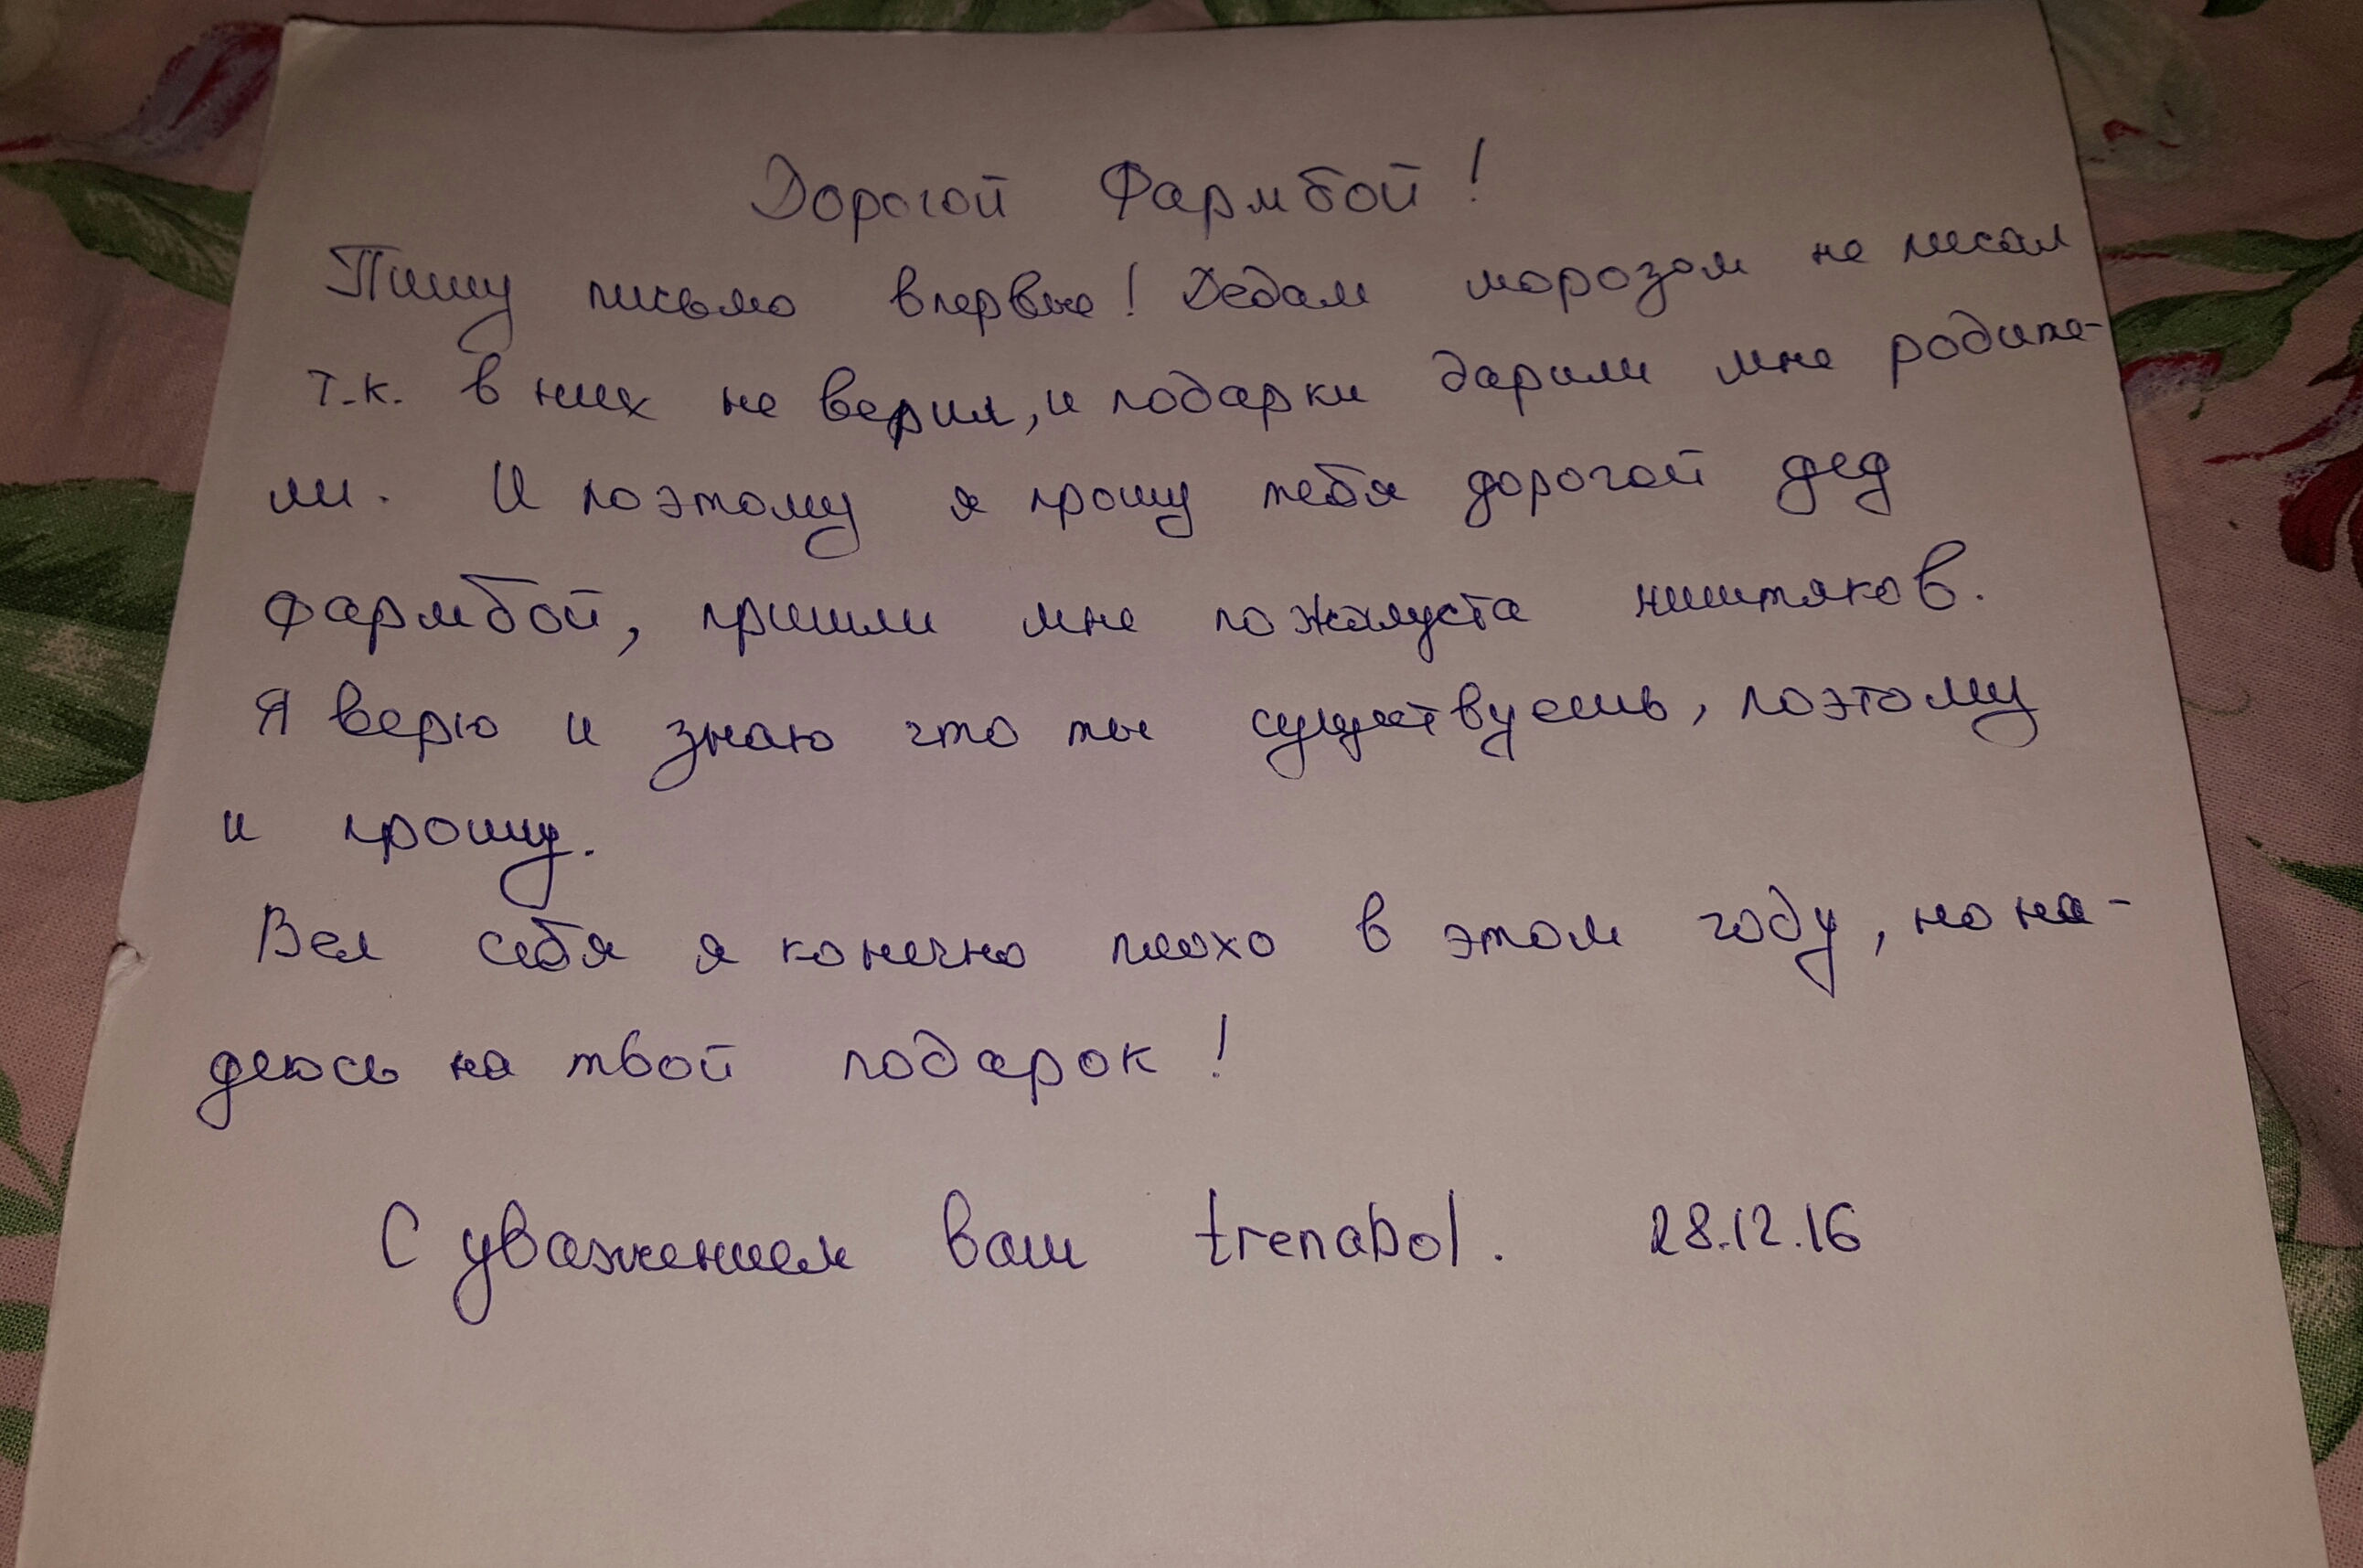 Дорогой Фармбой!
Пишу письмо впервые! Дедам морозам не писал
т.к. в них не верил, и подарки дарили мне родите-
ли. И поэтому я прошу тебя дорогой дед
фармбой, пришли мне пожалуста ништяков.
Я верю и знаю что ты существуешь, поэтому
и прошу.
Вел себя я конечно плохо в этом году, но на-
деюсь на твой подарок!
С уважением ваш trenabol. 28.12.16